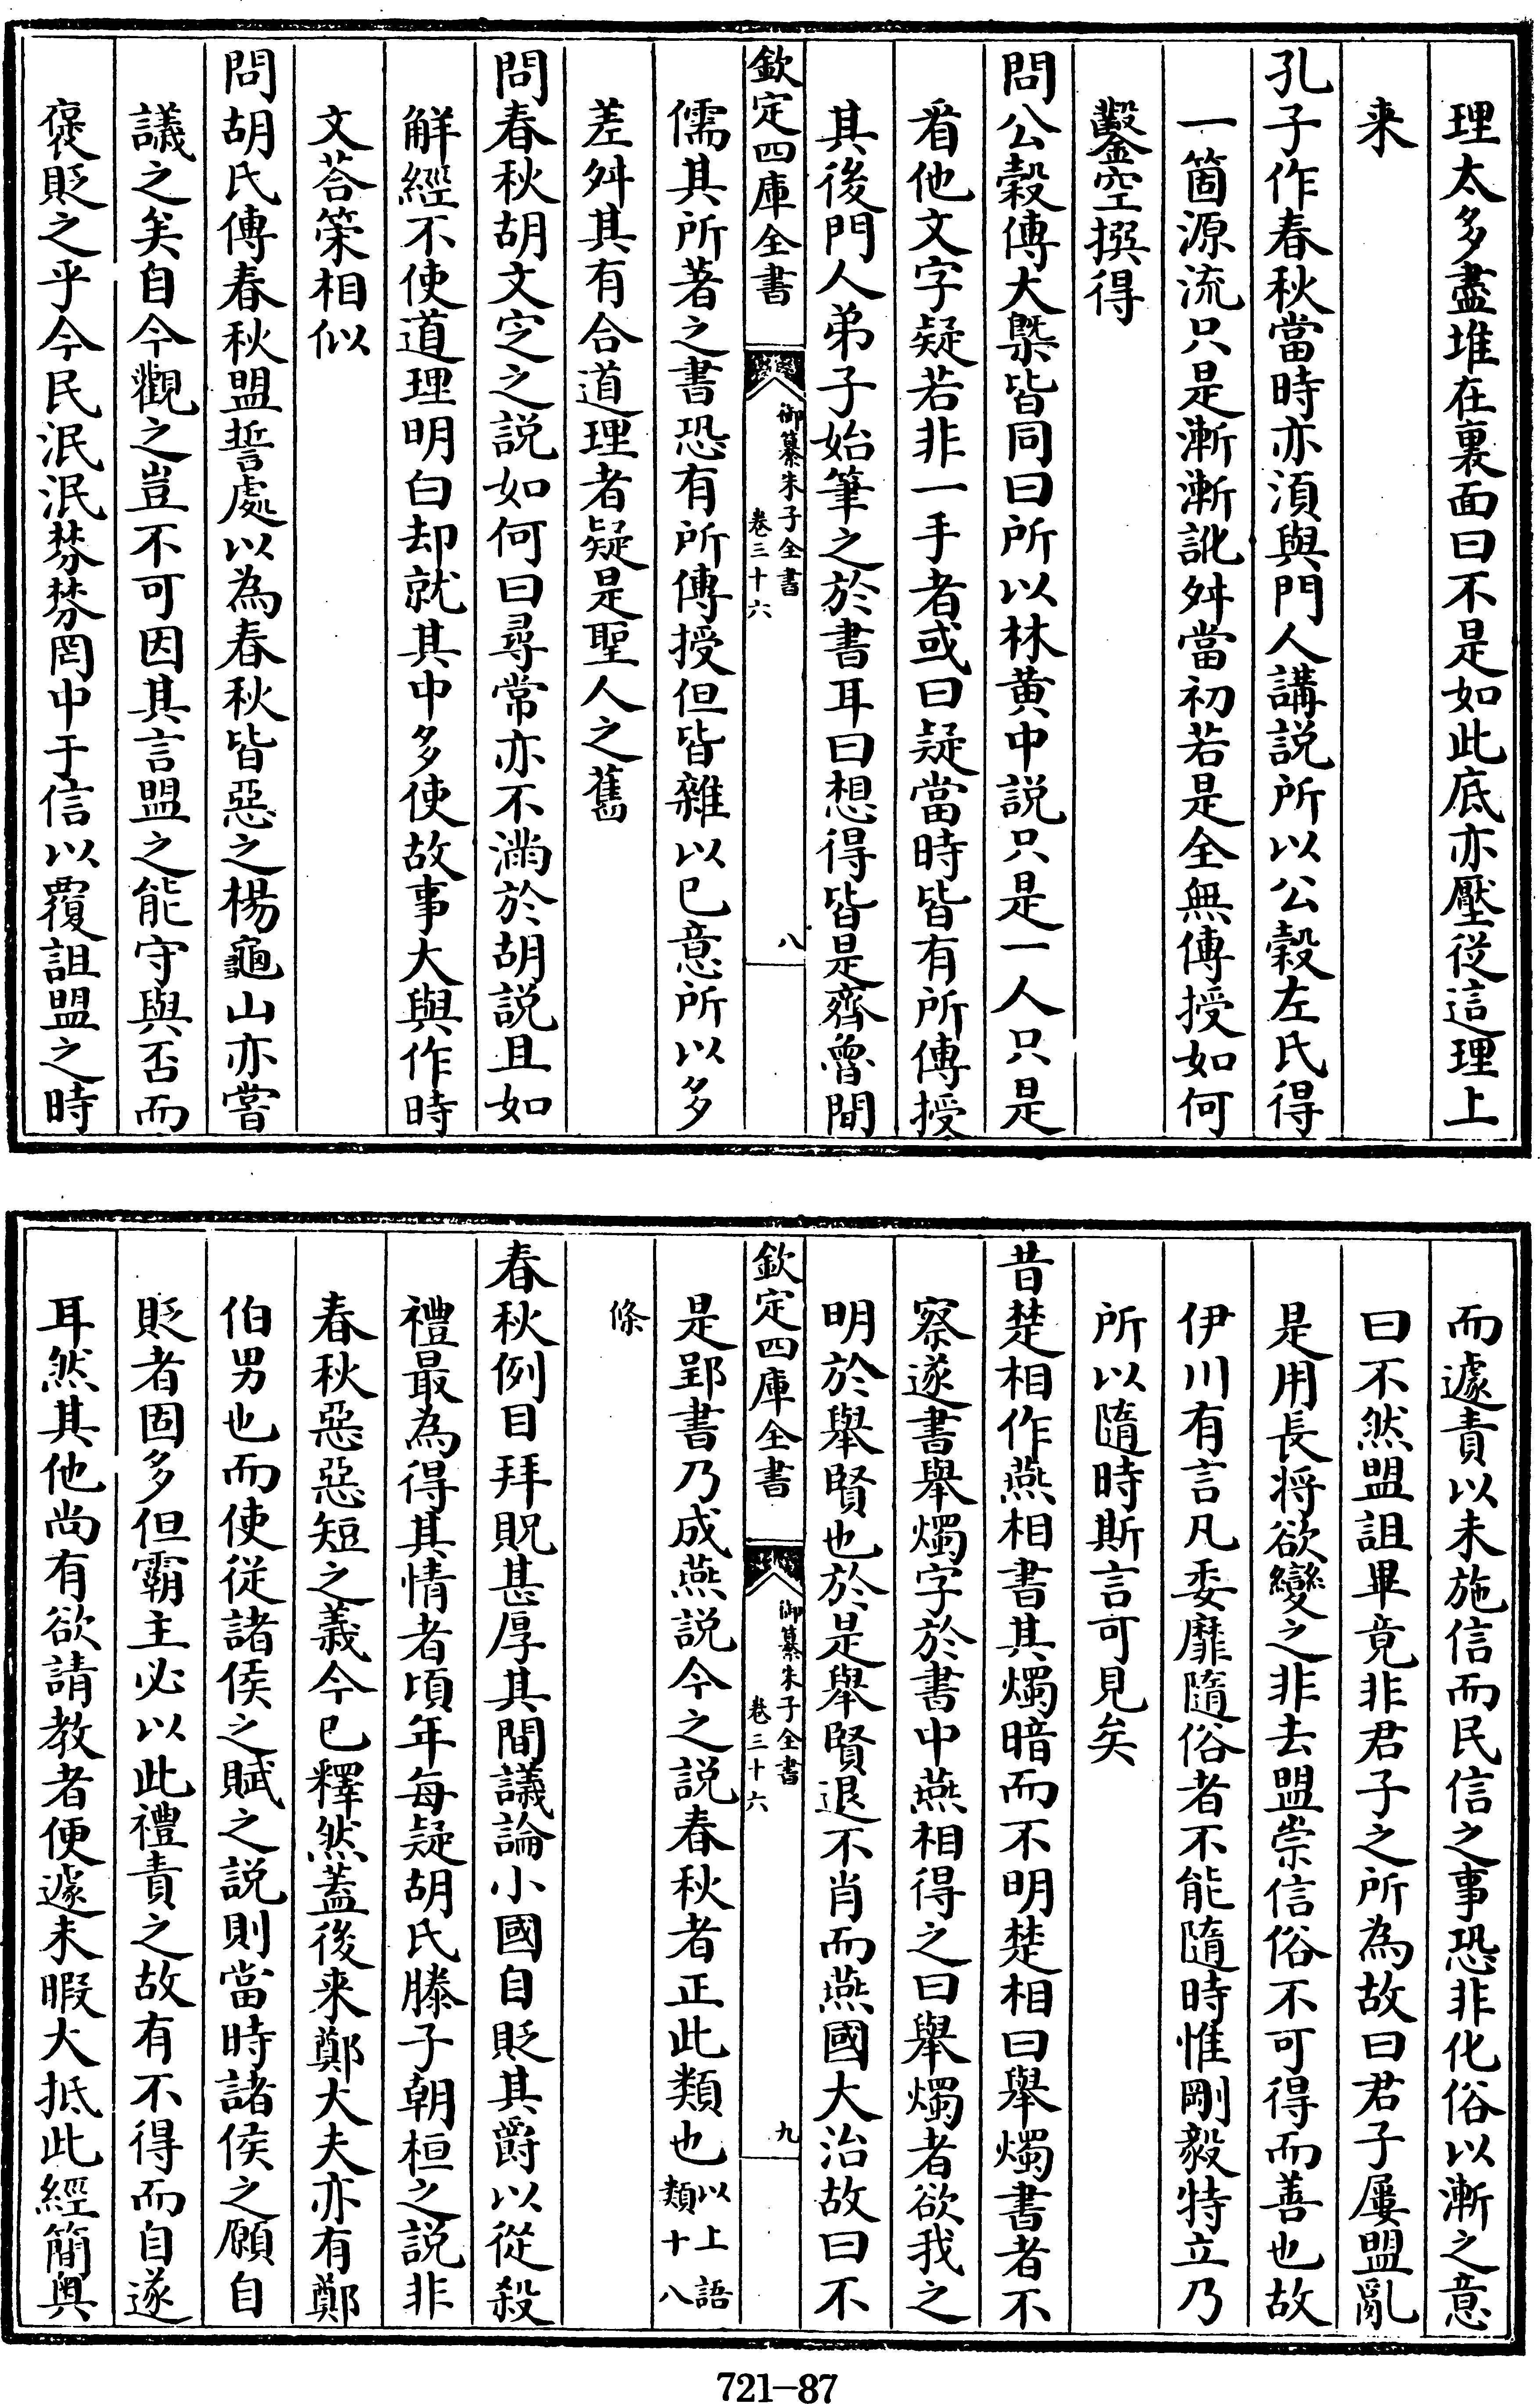 理太多盡堆在裏面曰不是如此底亦壓從這理上
来
孔子作春秋當時亦湏與門人講説所以公穀左氏得
一箇源流只是漸漸訛舛當初若是全無傳授如何
鑿空撰得
問公穀傳大槩皆同曰所以林黄中説只是一人只是
㸔他文字疑若非一手者或曰疑當時皆有所傳授
其後門人弟子始筆之於書耳曰想得皆是齊魯間
欽定四庫全書
御纂朱子全書
卷三十六
八
儒其所著之書恐有所傳授但皆雜以己意所以多
差舛其有合道理者疑是聖人之舊
問春秋胡文定之説如何曰尋常亦不滿於胡説且如
解經不使道理明白却就其中多使故事大與作時
文荅策相似
問胡氏傳春秋盟誓處以為春秋皆惡之楊龜山亦嘗
議之矣自今觀之豈不可因其言盟之能守與否而
襃貶之乎今民泯泯棼棼罔中于信以覆詛盟之時
而遽責以未施信而民信之事恐非化俗以漸之意
曰不然盟詛畢竟非君子之所為故曰君子屢盟亂
是用長將欲變之非去盟崇信俗不可得而善也故
伊川有言凡委靡隨俗者不能隨時惟剛毅特立乃
所以隨時斯言可見矣
昔楚相作燕相書其燭暗而不明楚相曰舉燭書者不
察遂書舉燭字於書中燕相得之曰舉燭者欲我之
明於舉賢也於是舉賢退不肖而燕國大治故曰不
欽定四庫全書
御纂朱子全書
卷三十六
九
是郢書乃成燕説今之説春秋者正此類也以上語類十八
條
春秋例目拜貺甚厚其間議論小國自貶其爵以從殺
禮最為得其情者頃年每疑胡氏滕子朝桓之説非
春秋惡惡短之義今已釋然蓋後来鄭大夫亦有鄭
伯男也而使從諸侯之賦之説則當時諸侯之願自
貶者固多但霸主必以此禮責之故有不得而自遂
耳然其他尚有欲請教者便遽未暇大抵此經簡奥
721-87